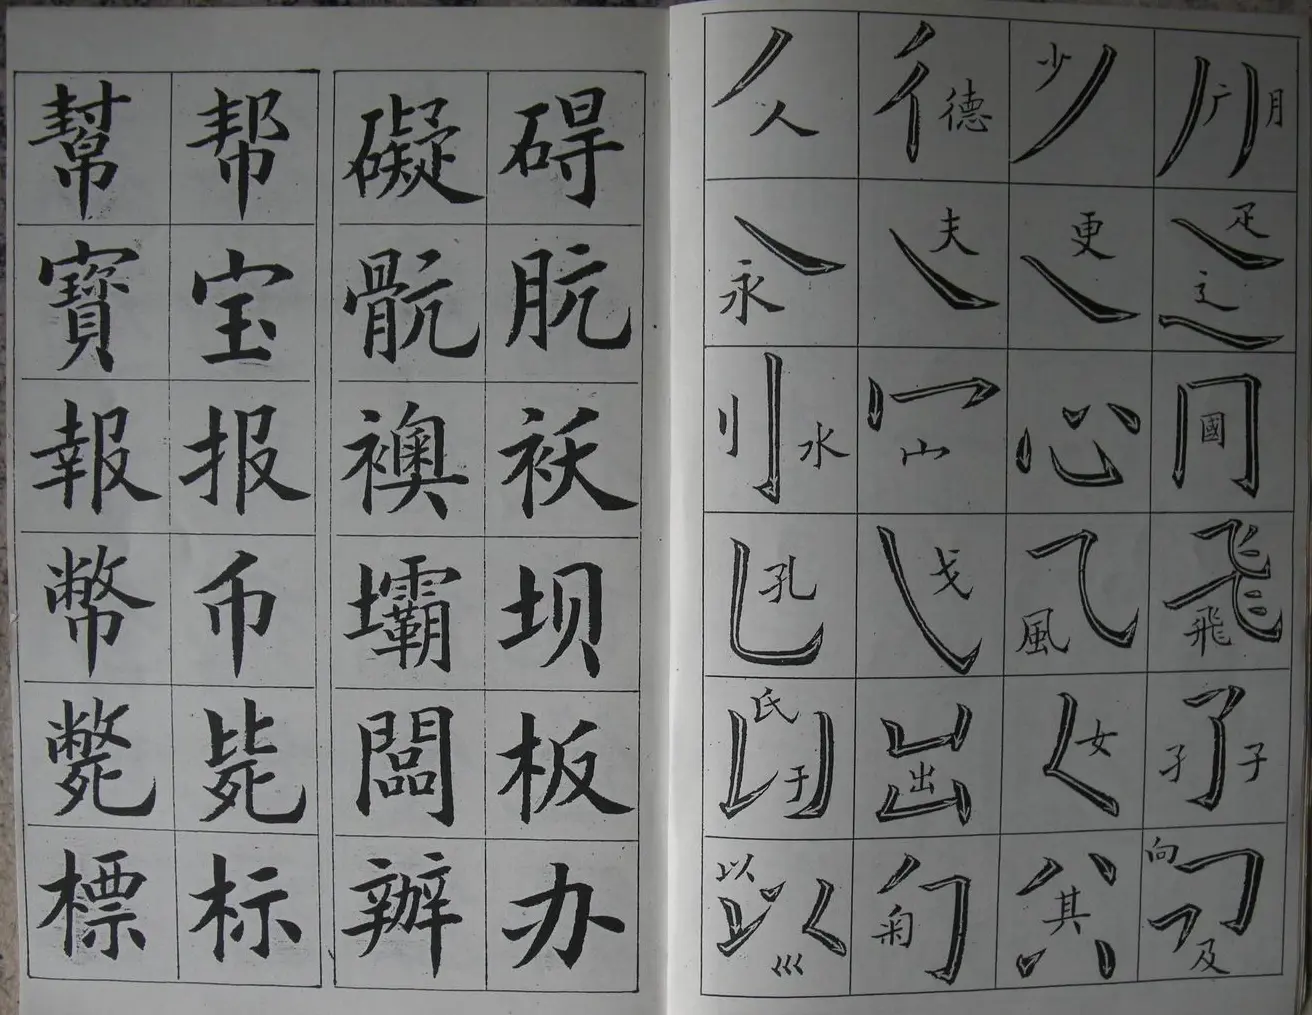 幫 帮 礙 碍
寶 宝 骯 肮
報 报 襖 袄
幣 币 壩 坝
斃 毙 闆 板
標 标 辦 办
人 德 少 广 月
永 夫 更 疋 辶
刂 水 宀 心 國
孔 戈 風 飛
氏 于 出 女 孑 子
以 巛 菊 其 向 及